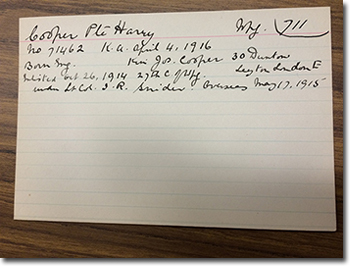 Cooper Pte Harry Wpg. 711
No 71462 K.a. April 4, 1916
Born Eng. Kin Jos. Cooper 30 Dunton
Enlisted Oct 26, 1914 27th C of Wpg. Leyton London E
under Lt Col. I. R. Snider Overseas May 17, 1915